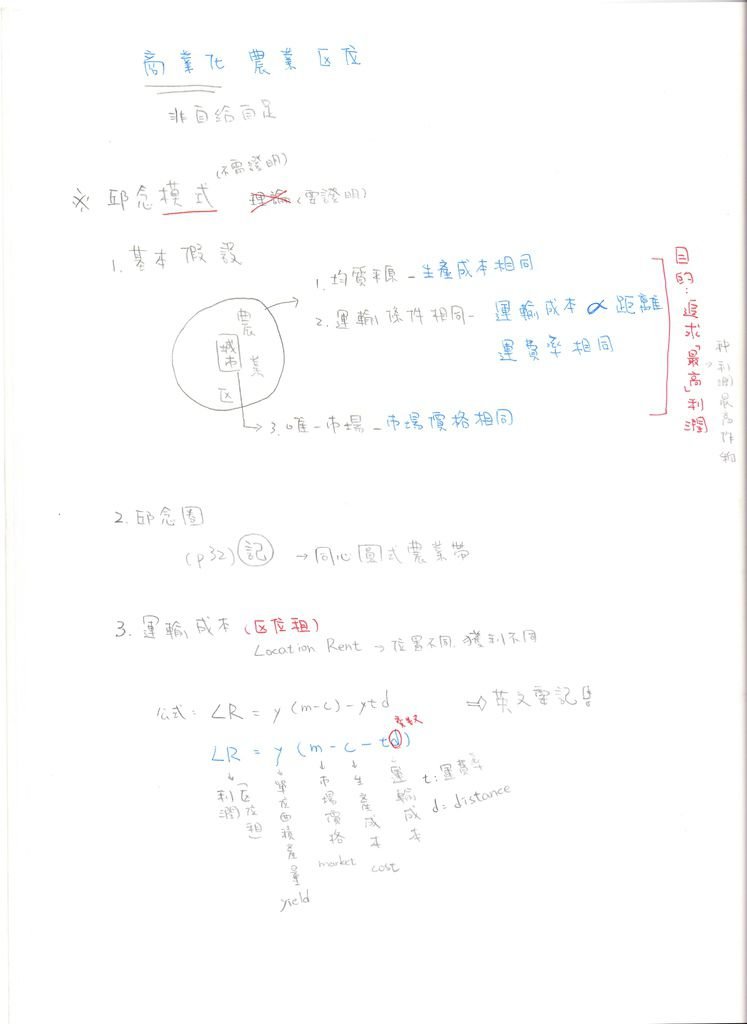 商業化農業区位
非自給自足
(不需證明)
※ 邱念模式 理論(需證明)
1. 基本假設
農業区
城市
1. 均質平原 - 生產成本相同
2. 運輸條件相同 - 運輸成本 ∝ 距離
運費率相同
3. 唯一市場 - 市場價格相同
目的:追求「最高」利潤
→种利潤最高作物
2. 邱念圈
(p32) 記 → 同心圓式農業帶
3. 運輸成本 (区位租)
Location Rent → 位置不同,獲利不同
公式: LR = y (m-c) - ytd ⇒ 英文需記
LR = y (m - c - td)
利潤(区位租)
單位面積產量
yield
市場價格
market
生產成本
cost
運輸成本
t: 運費率
d= distance